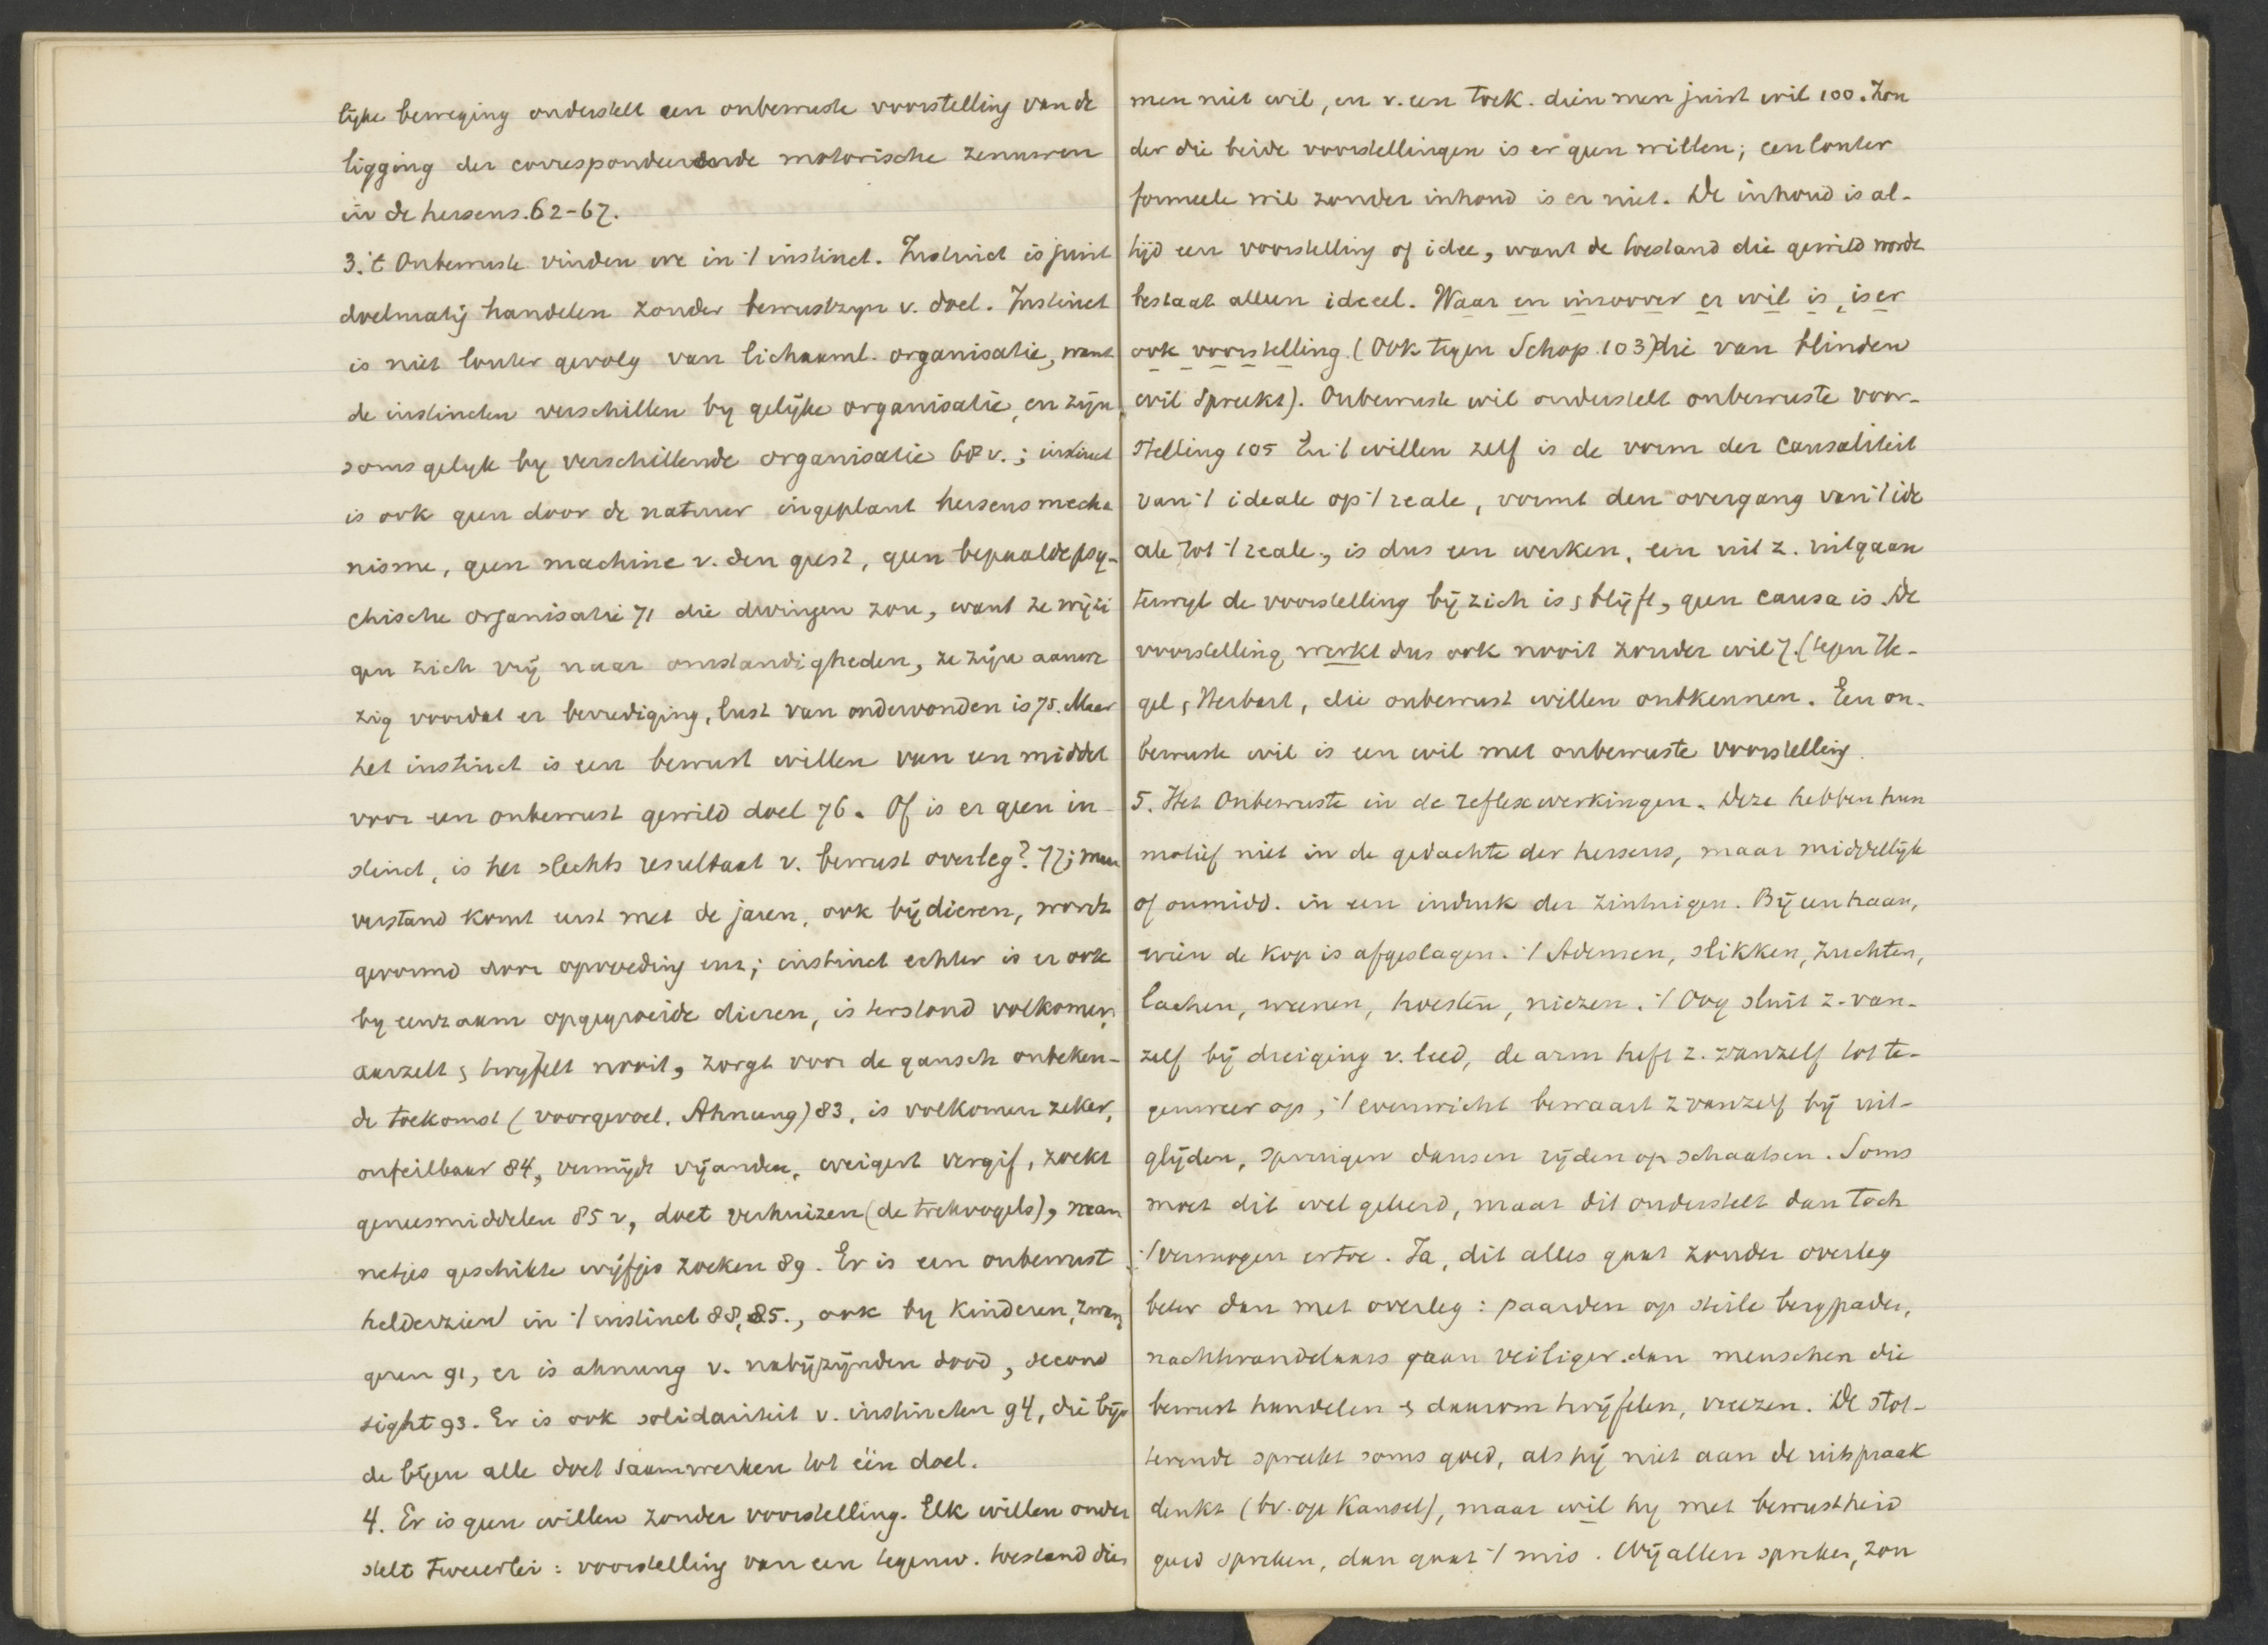 lijke beweging onderstelt een onbewuste voorstelling van de
ligging der correspondeerende motorische zenuwen
in de hersens. 62-67.
3. 't Onbewuste vinden we in 't instinct. Instinct is juist
doelmatig handelen zonder bewustzijn v. doel. Instinct
is niet louter gevolg van lichaaml. organisatie, want
de instincten verschillen by gelijke organisatie, en zijn
soms gelyk by verschillende organisatie 68 v.; instinct
is ook geen door de natuur ingeplant hersens mecha
nisme, geen machine v. den geest, geen bepaalde psy-
chische organisatie 71 die dwingen zou, want ze wijzi
gen zich vrij naar omstandigheden, ze zijn aanwe
zig voordat er bevrediging, lust van ondervonden is 75. Maar
het instinct is een bewust willen van een middel
voor een onbewust gewild doel 76. Of is er geen in-
stinct, is het slechts resultaat v. bewust overleg? 77; maar
verstand komt eerst met de jaren, ook bij dieren, wordt
gevormd door opvoeding enz; instinct echter is er ook
by eenzaam opgegroeide dieren, is terstond volkomen,
aarzelt & twyfelt nooit, zorgt voor de gansch onbeken-
de toekomst (voorgevoel. Ahnung) 83, is volkomen zeker,
onfeilbaar 84, vermijdt vijanden, weigert vergif, zoekt
geneesmiddelen 85 v, doet verhuizen (de trekvogels), man
netjes geschikte wijfjes zoeken 89. Er is een onbewust
helderzien in 't instinct 88, 85., ook by kinderen, zwan
geren 91, er is ahnung v. nabijzijnden dood, second
sight 93. Er is ook solidariteit v. instincten 94, die bijv
de bijen alle doet saamwerken tot één doel.
4. Er is geen willen zonder voorstelling. Elk willen onder
stelt tweeerlei: voorstelling van een tegenw. toestand dien
men niet wil, en v. een toek. dien men juist wil 100. Zon
der die beide voorstellingen is er geen willen; een louter
formeele wil zonder inhoud is er niet. De inhoud is al-
tijd een voorstelling of idee, want de toestand die gewild wordt
bestaat alleen ideeel. Waar en insoover er wil is, is er
ook voorstelling. (Ook tegen Schop. 103) die van blinden
wil spreekt). Onbewuste wil onderstelt onbewuste voor-
stelling 105 In 't willen zelf is de vorm der causaliteit
van 't ideale op 't reale, vormt den overgang van 't ide
ale tot 't reale., is dus een werken, een uit z. uitgaan
terwyl de voorstelling bij zich is & blijft, geen causa is. De
voorstelling werkt dus ook nooit zonder wil). (tegen He-
gel & Herbart, die onbewust willen ontkennen. Een on-
bewuste wil is een wil met onbewuste voorstelling.
5. Het Onbewuste in de reflexwerkingen. Deze hebben hun
motief niet in de gedachte der hersens, maar middellijk
of onmidd. in een indruk der zintuigen. Bij een haan,
wien de kop is afgeslagen. 't Ademen, slikken, zuchten,
lachen, weenen, hoesten, niezen. 't Oog sluit z. van-
zelf bij dreiging v. leed, de arm heft z. vanzelf tot te-
genweer op, 't evenwicht bewaart z vanzelf bij uit-
glijden, springen dansen rijden op schaatsen. Soms
moet dit wel geleerd, maar dit onderstelt dan toch
't vermogen ertoe. Ja, dit alles gaat zonder overleg
beter dan met overleg: paarden op steile bergpaden,
nachtwandelaars gaan veiliger dan menschen die
bewust handelen & daarom twijfelen, vreezen. De stot-
terende spreekt soms goed, als hij niet aan de uitspraak
denkt (bv. op kansel), maar wil hy met bewustheid
goed spreken, dan gaat 't mis. Wij allen spreken, zon